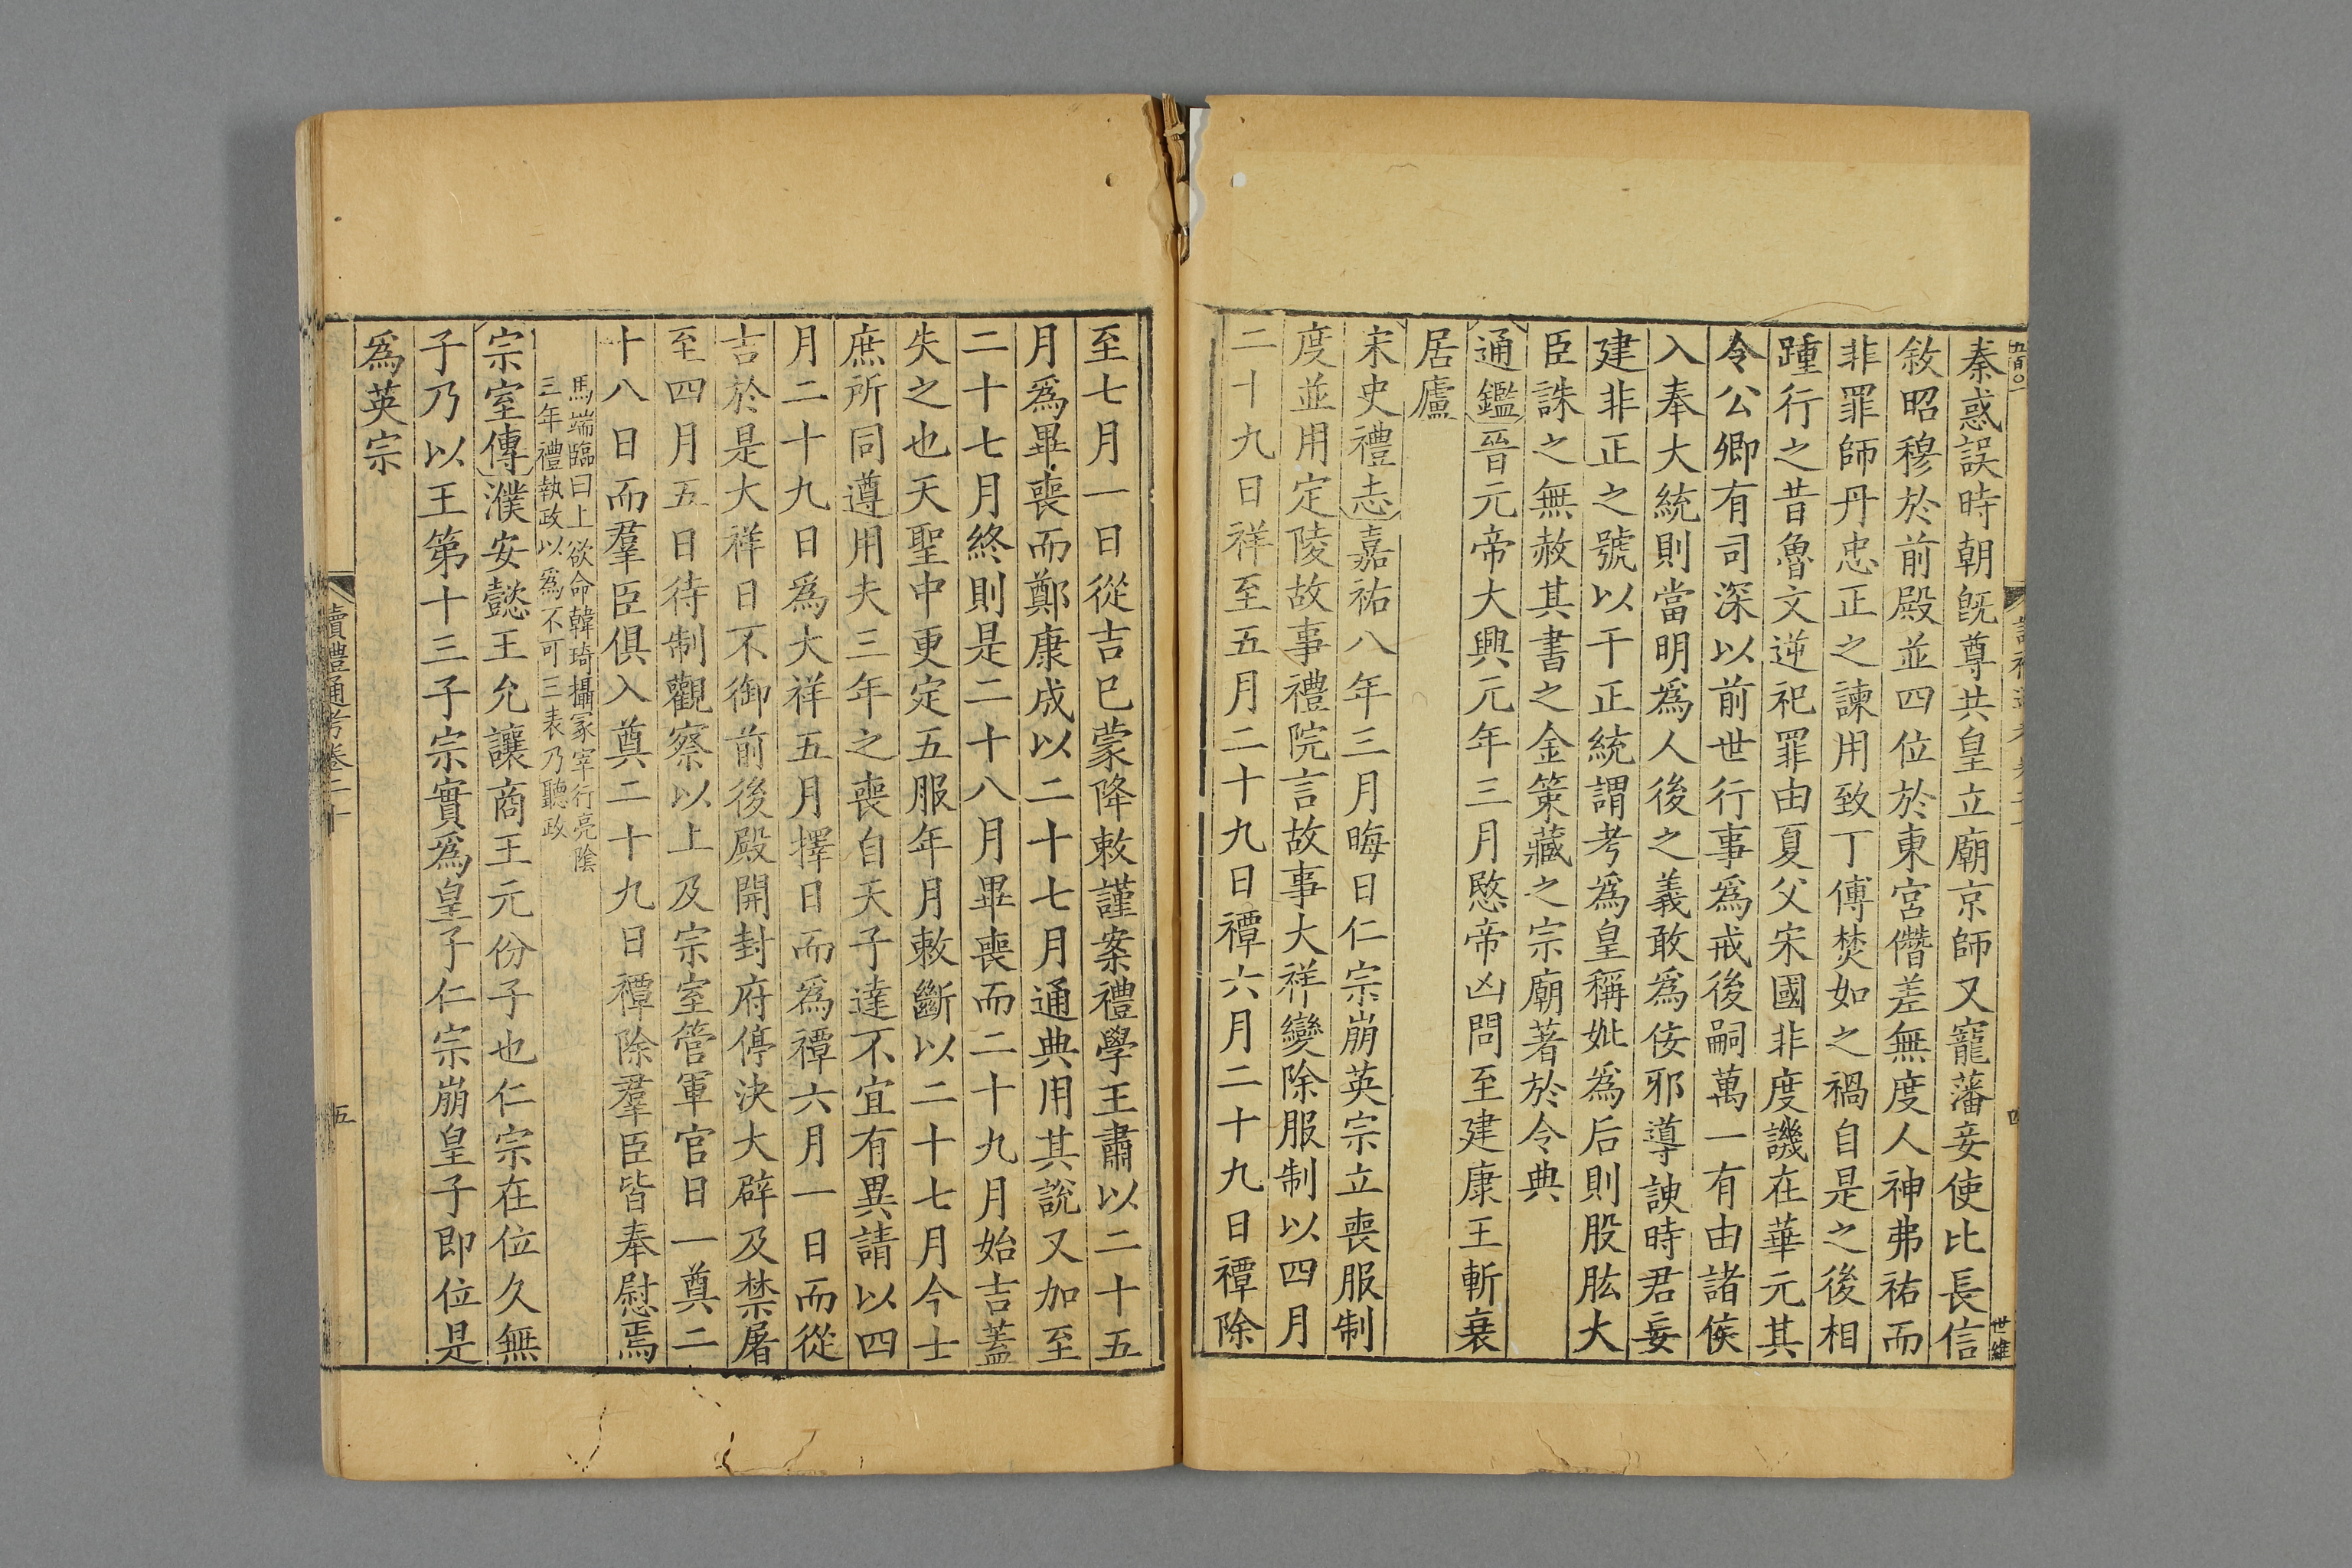 秦惑誤時朝旣尊共皇立廟京師又寵藩妾使比長信
敘昭穆於前殿並四位於東宮僭差無度人神弗祐而
非罪師丹忠正之諫用致丁傅焚如之禍自是之後相
踵行之昔魯文逆祀罪由夏父宋國非度譏在華元其
令公卿有司深以前世行事爲戒後嗣萬一有由諸侯
入奉大統則當明爲人後之義敢爲佞邪導諛時君妄
建非正之號以干正統謂考爲皇稱妣爲后則股肱大
臣誅之無赦其書之金策藏之宗廟著於令典
通鑑晉元帝大興元年三月愍帝凶問至建康王斬衰
居廬
宋史禮志嘉祐八年三月晦日仁宗崩英宗立喪服制
度並用定陵故事禮院言故事大祥變除服制以四月
二十九日祥至五月二十九日禫六月二十九日禫除
四
世維
至七月一日從吉已蒙降敕謹案禮學王肅以二十五
月爲畢喪而鄭康成以二十七月通典用其說又加至
二十七月終則是二十八月畢喪而二十九月始吉蓋
失之也天聖中更定五服年月敕斷以二十七月今士
庶所同遵用夫三年之喪自天子達不宜有異請以四
月二十九日爲大祥五月擇日而爲禫六月一日而從
吉於是大祥日不御前後殿開封府停決大辟及禁屠
至四月五日待制觀察以上及宗室管軍官日一奠二
十八日而羣臣俱入奠二十九日禫除羣臣皆奉慰焉
馬端臨曰上欲命韓琦攝冢宰行亮陰
三年禮執政以爲不可三表乃聽政
宗室傳濮安懿王允讓商王元份子也仁宗在位久無
子乃以王第十三子宗實爲皇子仁宗崩皇子即位是
爲英宗
讀禮通考卷二十
五